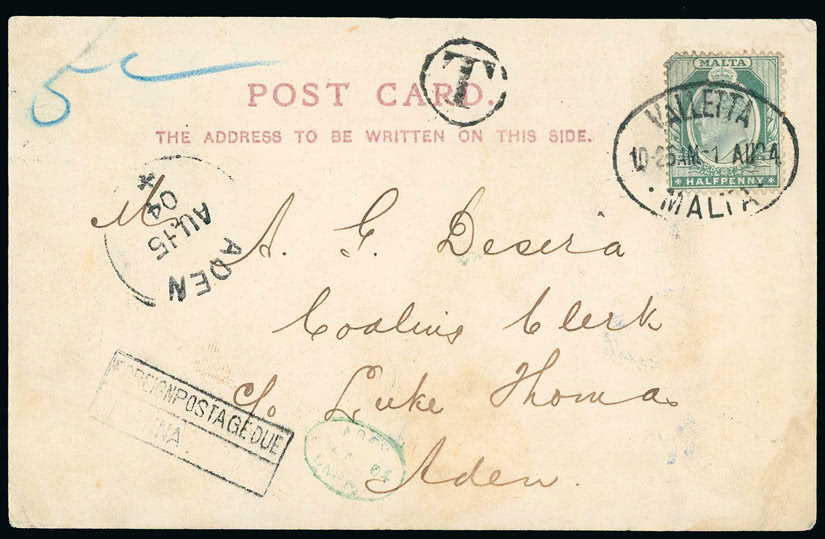 5c
T
POST CARD.
THE ADDRESS TO BE WRITTEN ON THIS SIDE.
MALTA
HALFPENNY
VALLETTA
10-25AM-1 AU 04
MALTA
ADEN
AU.15
04
Mr A. G. Desira
Coaling Clerk
c/o Luke Thomas
Aden.
FOREIGN POSTAGE DUE
ANNA
ADEN
04